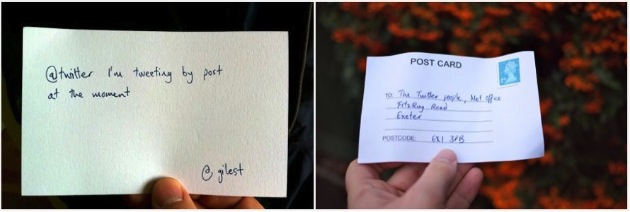 @twitter I'm tweeting by post
at the moment
@gilest
POST CARD
TO: The Twitter people, Met Office
FitzRoy Road
Exeter
POSTCODE: EX1 3PB